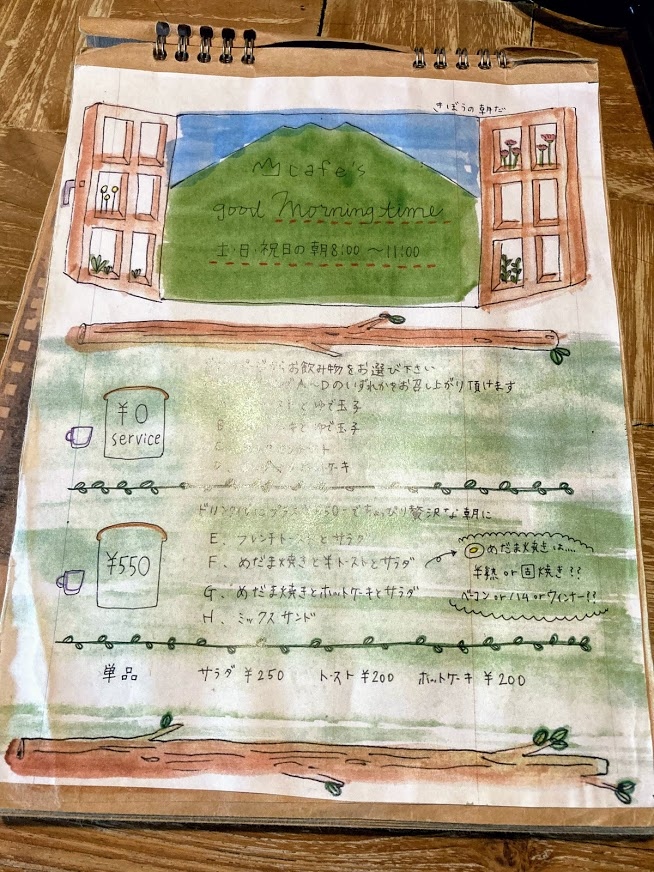 きぼうの朝だ
cafe's
good Morning time
土・日・祝日の朝8:00〜11:00
お飲み物をお選び下さい
A〜Dのいずれかをお召し上がり頂けます
¥0
service
とゆで玉子
B、 とゆで玉子
ケーキ
贅沢な朝に
¥550
E、フレンチトーストとサラダ
F、めだま焼きと半トーストとサラダ
G、めだま焼きとホットケーキとサラダ
H、ミックスサンド
めだま焼きは....
半熟 or 固焼き??
ベーコン or ハム or ウィンナー??
単品 サラダ ¥250 トースト ¥200 ホットケーキ ¥200